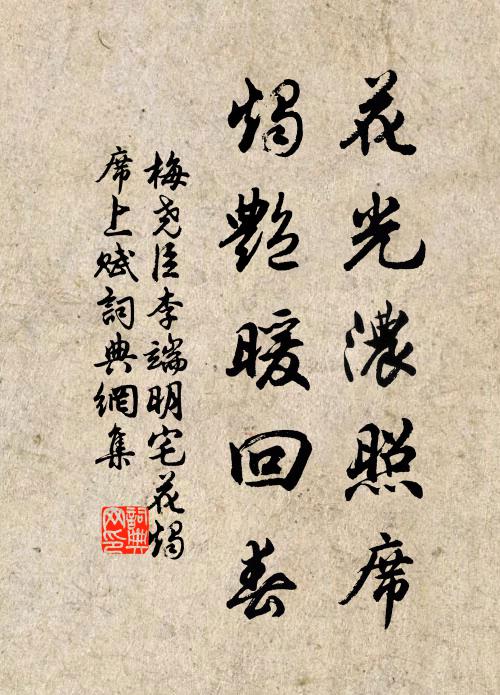 花光濃照席
燭艷暖回春
梅堯臣李端明宅花燭
席上賦詞典網集
詞典网印